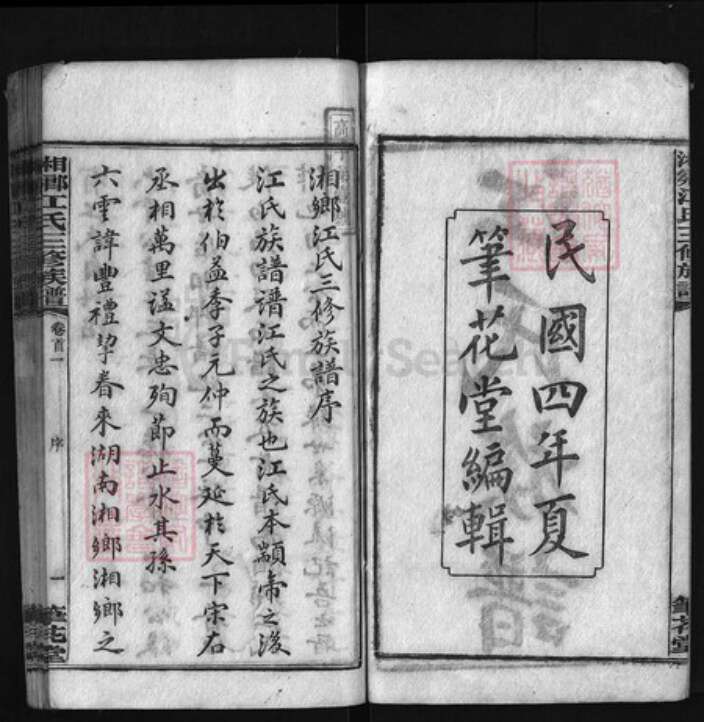 民國四年夏
筆花堂編輯
湘鄉江氏三修族譜序
江氏族譜譜江氏之族也江氏本顓帝之後
出於伯益季子元仲而蔓延於天下宗右
丞相萬里諡文忠殉節止水其孫
六雲諱豐禮挈眷來湖南湘鄉湘鄉之
湘鄉江氏三修族譜
卷首一
序
一
筆花堂